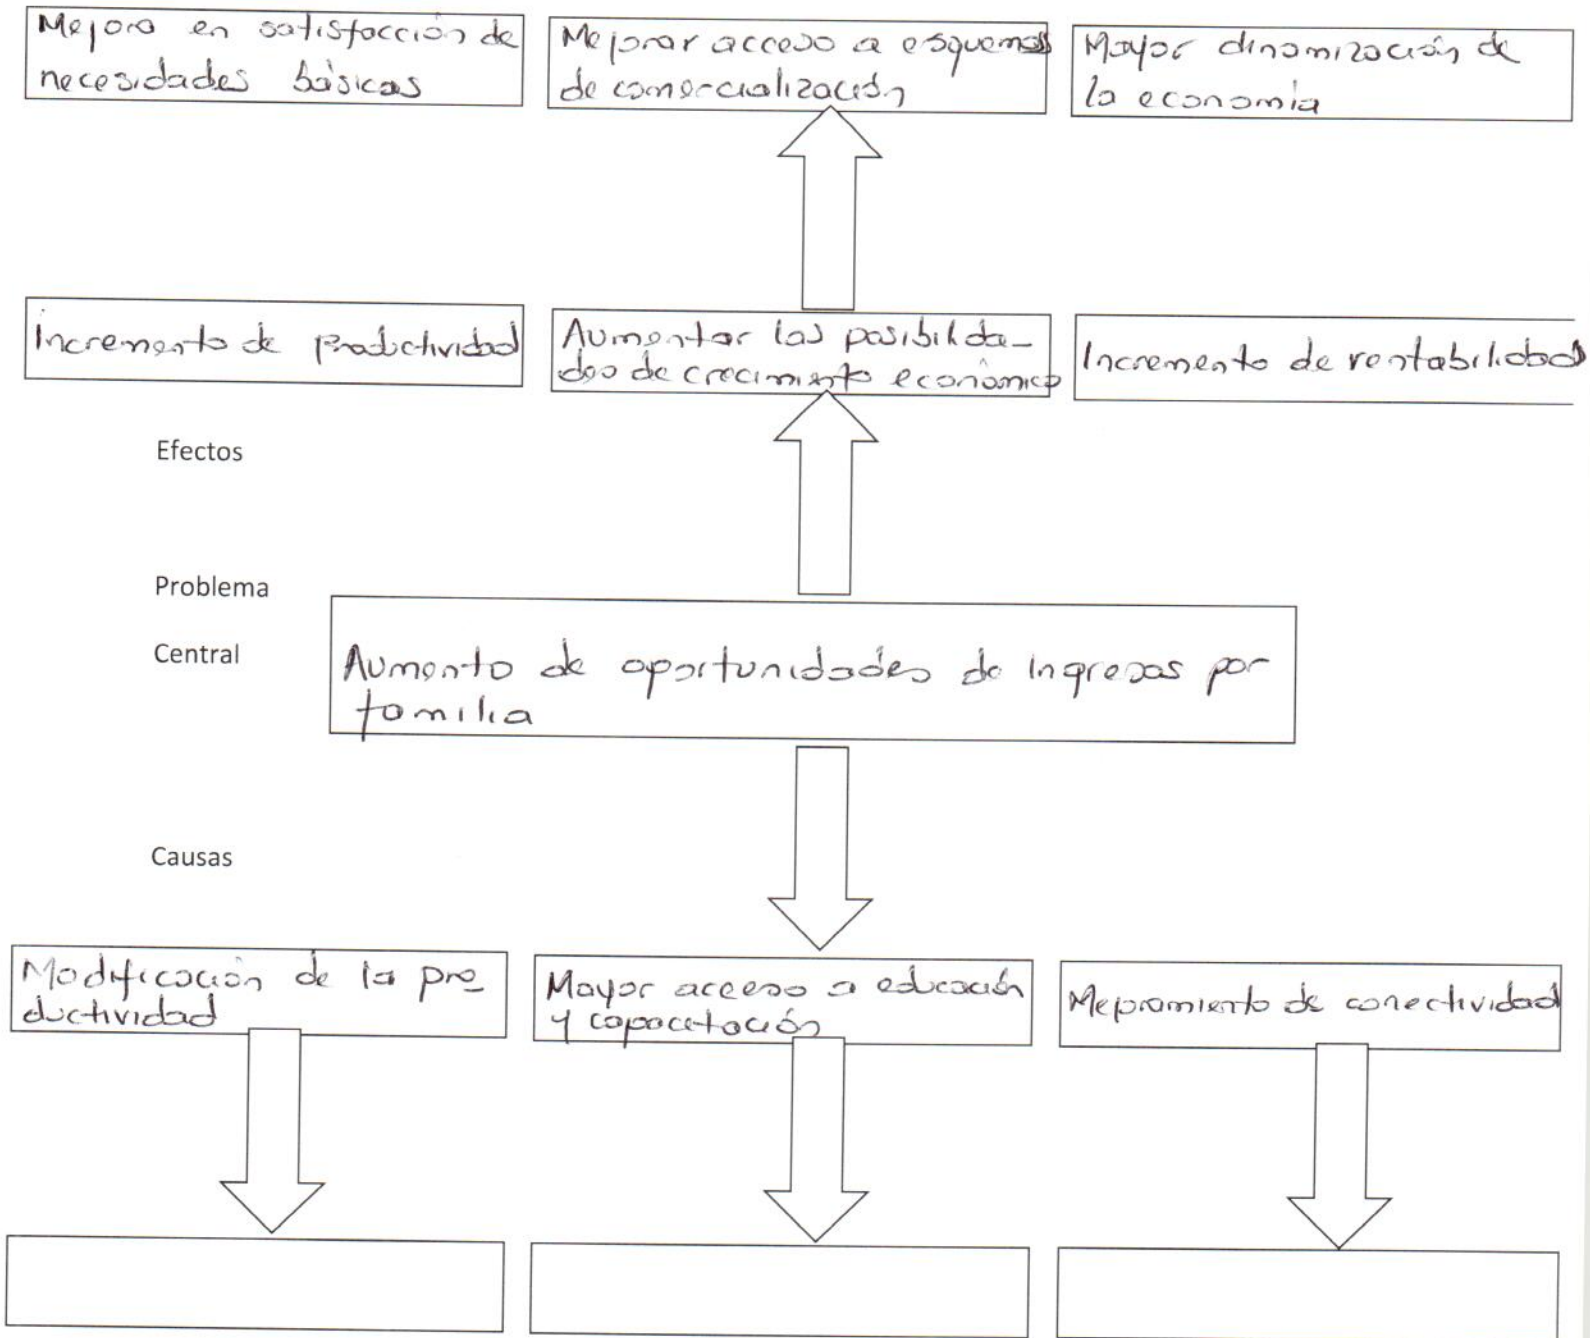 Mejora en satisfacción de
necesidades básicas
Mejorar acceso a esquemas
de comercialización
Mayor dinamización de
la economía
Incremento de productividad
Aumentar las posibilida-
des de crecimiento económico
Incremento de rentabilidad
Efectos
Problema
Central
Aumento de oportunidades de ingresos por
familia
Causas
Modificación de la pro-
ductividad
Mayor acceso a educación
y capacitación
Mejoramiento de conectividad